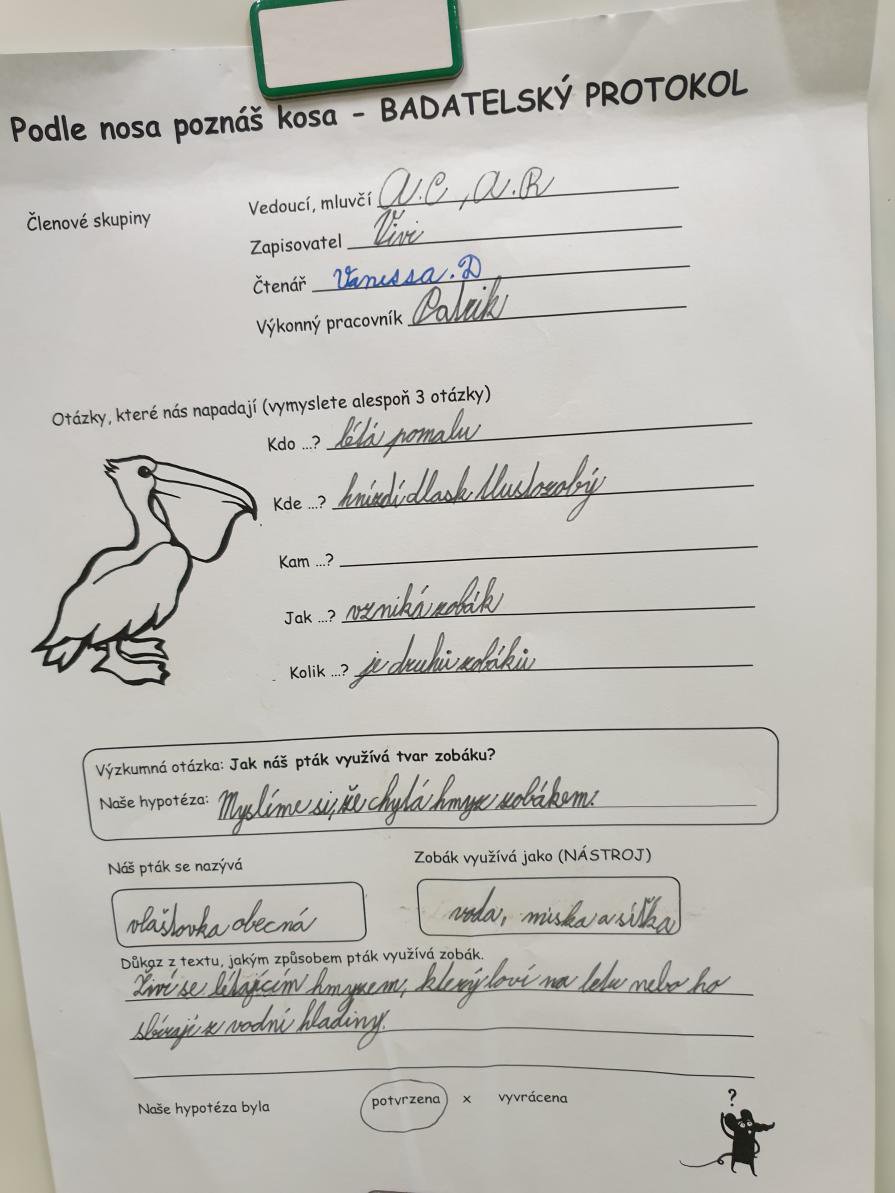 Podle nosa poznáš kosa - BADATELSKÝ PROTOKOL
Členové skupiny
Vedoucí, mluvčí A.C, A.R
Zapisovatel Vivi
Čtenář Vanessa.D
Výkonný pracovník Patrik
Otázky, které nás napadají (vymyslete alespoň 3 otázky)
Kdo ...? létá pomalu
Kde ...? hnízdí dlask tlustozobý
Kam ...?
Jak ...? vzniká zobák
Kolik ...? je druhů zobáků
Výzkumná otázka: Jak náš pták využívá tvar zobáku?
Naše hypotéza: Myslíme si, že chytá hmyz zobákem.
Náš pták se nazývá
Zobák využívá jako (NÁSTROJ)
vlaštovka obecná
voda, miska a síťka
Důkaz z textu, jakým způsobem pták využívá zobák.
Živí se létajícím hmyzem, který loví na letu nebo ho
sbírají z vodní hladiny.
Naše hypotéza byla potvrzena x vyvrácena
?